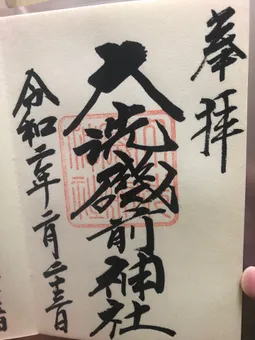 奉拝
大洗磯前神社
令和二年二月二十三日